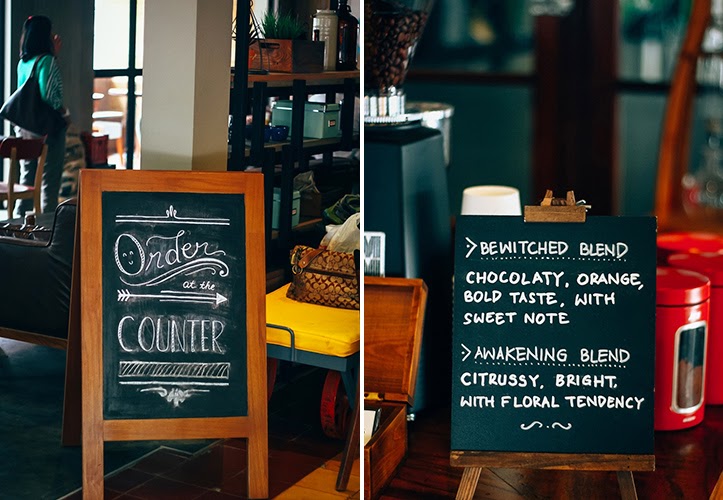 Order
at the
COUNTER
>BEWITCHED BLEND
CHOCOLATY, ORANGE,
BOLD TASTE, WITH
SWEET NOTE
>AWAKENING BLEND
CITRUSSY, BRIGHT,
WITH FLORAL TENDENCY